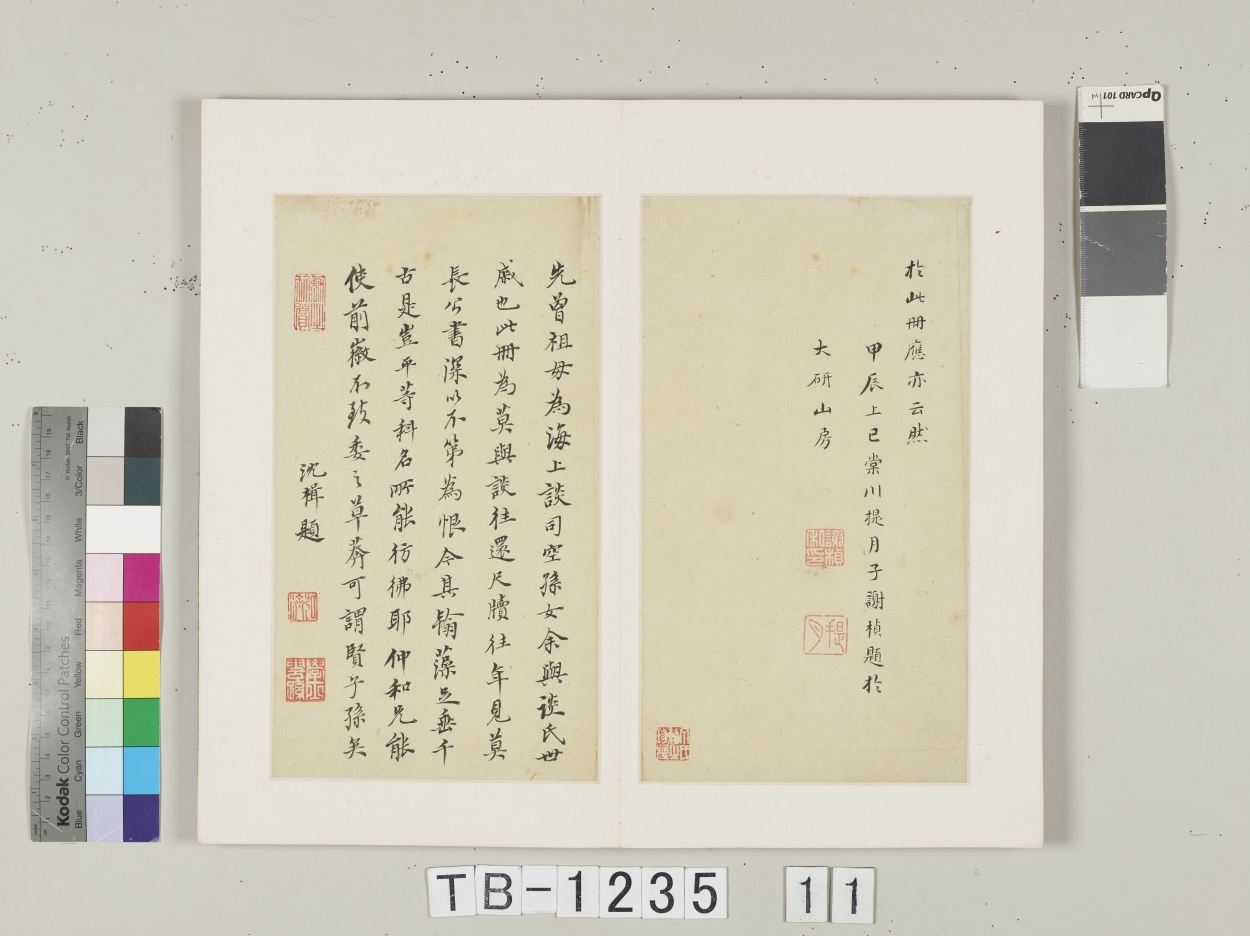 於此冊應亦云然
甲辰上巳棠川提月子謝楨題於
大研山房
先曾祖母為海上談司空孫女余與談氏世
戚也此冊為莫與談往還尺牘往年見莫
長公書深以不第為恨今其翰藻足垂千
古是豈平等科名所能彷彿耶仲和兄能
使前徽不致委之草莽可謂賢子孫矣
沈楫題
QPCARD 101 v4
Kodak Color Control Patches
© Kodak, 2007 TM: Kodak
Blue Cyan Green Yellow Red Magenta White 3/Color Black
TB-1235 11